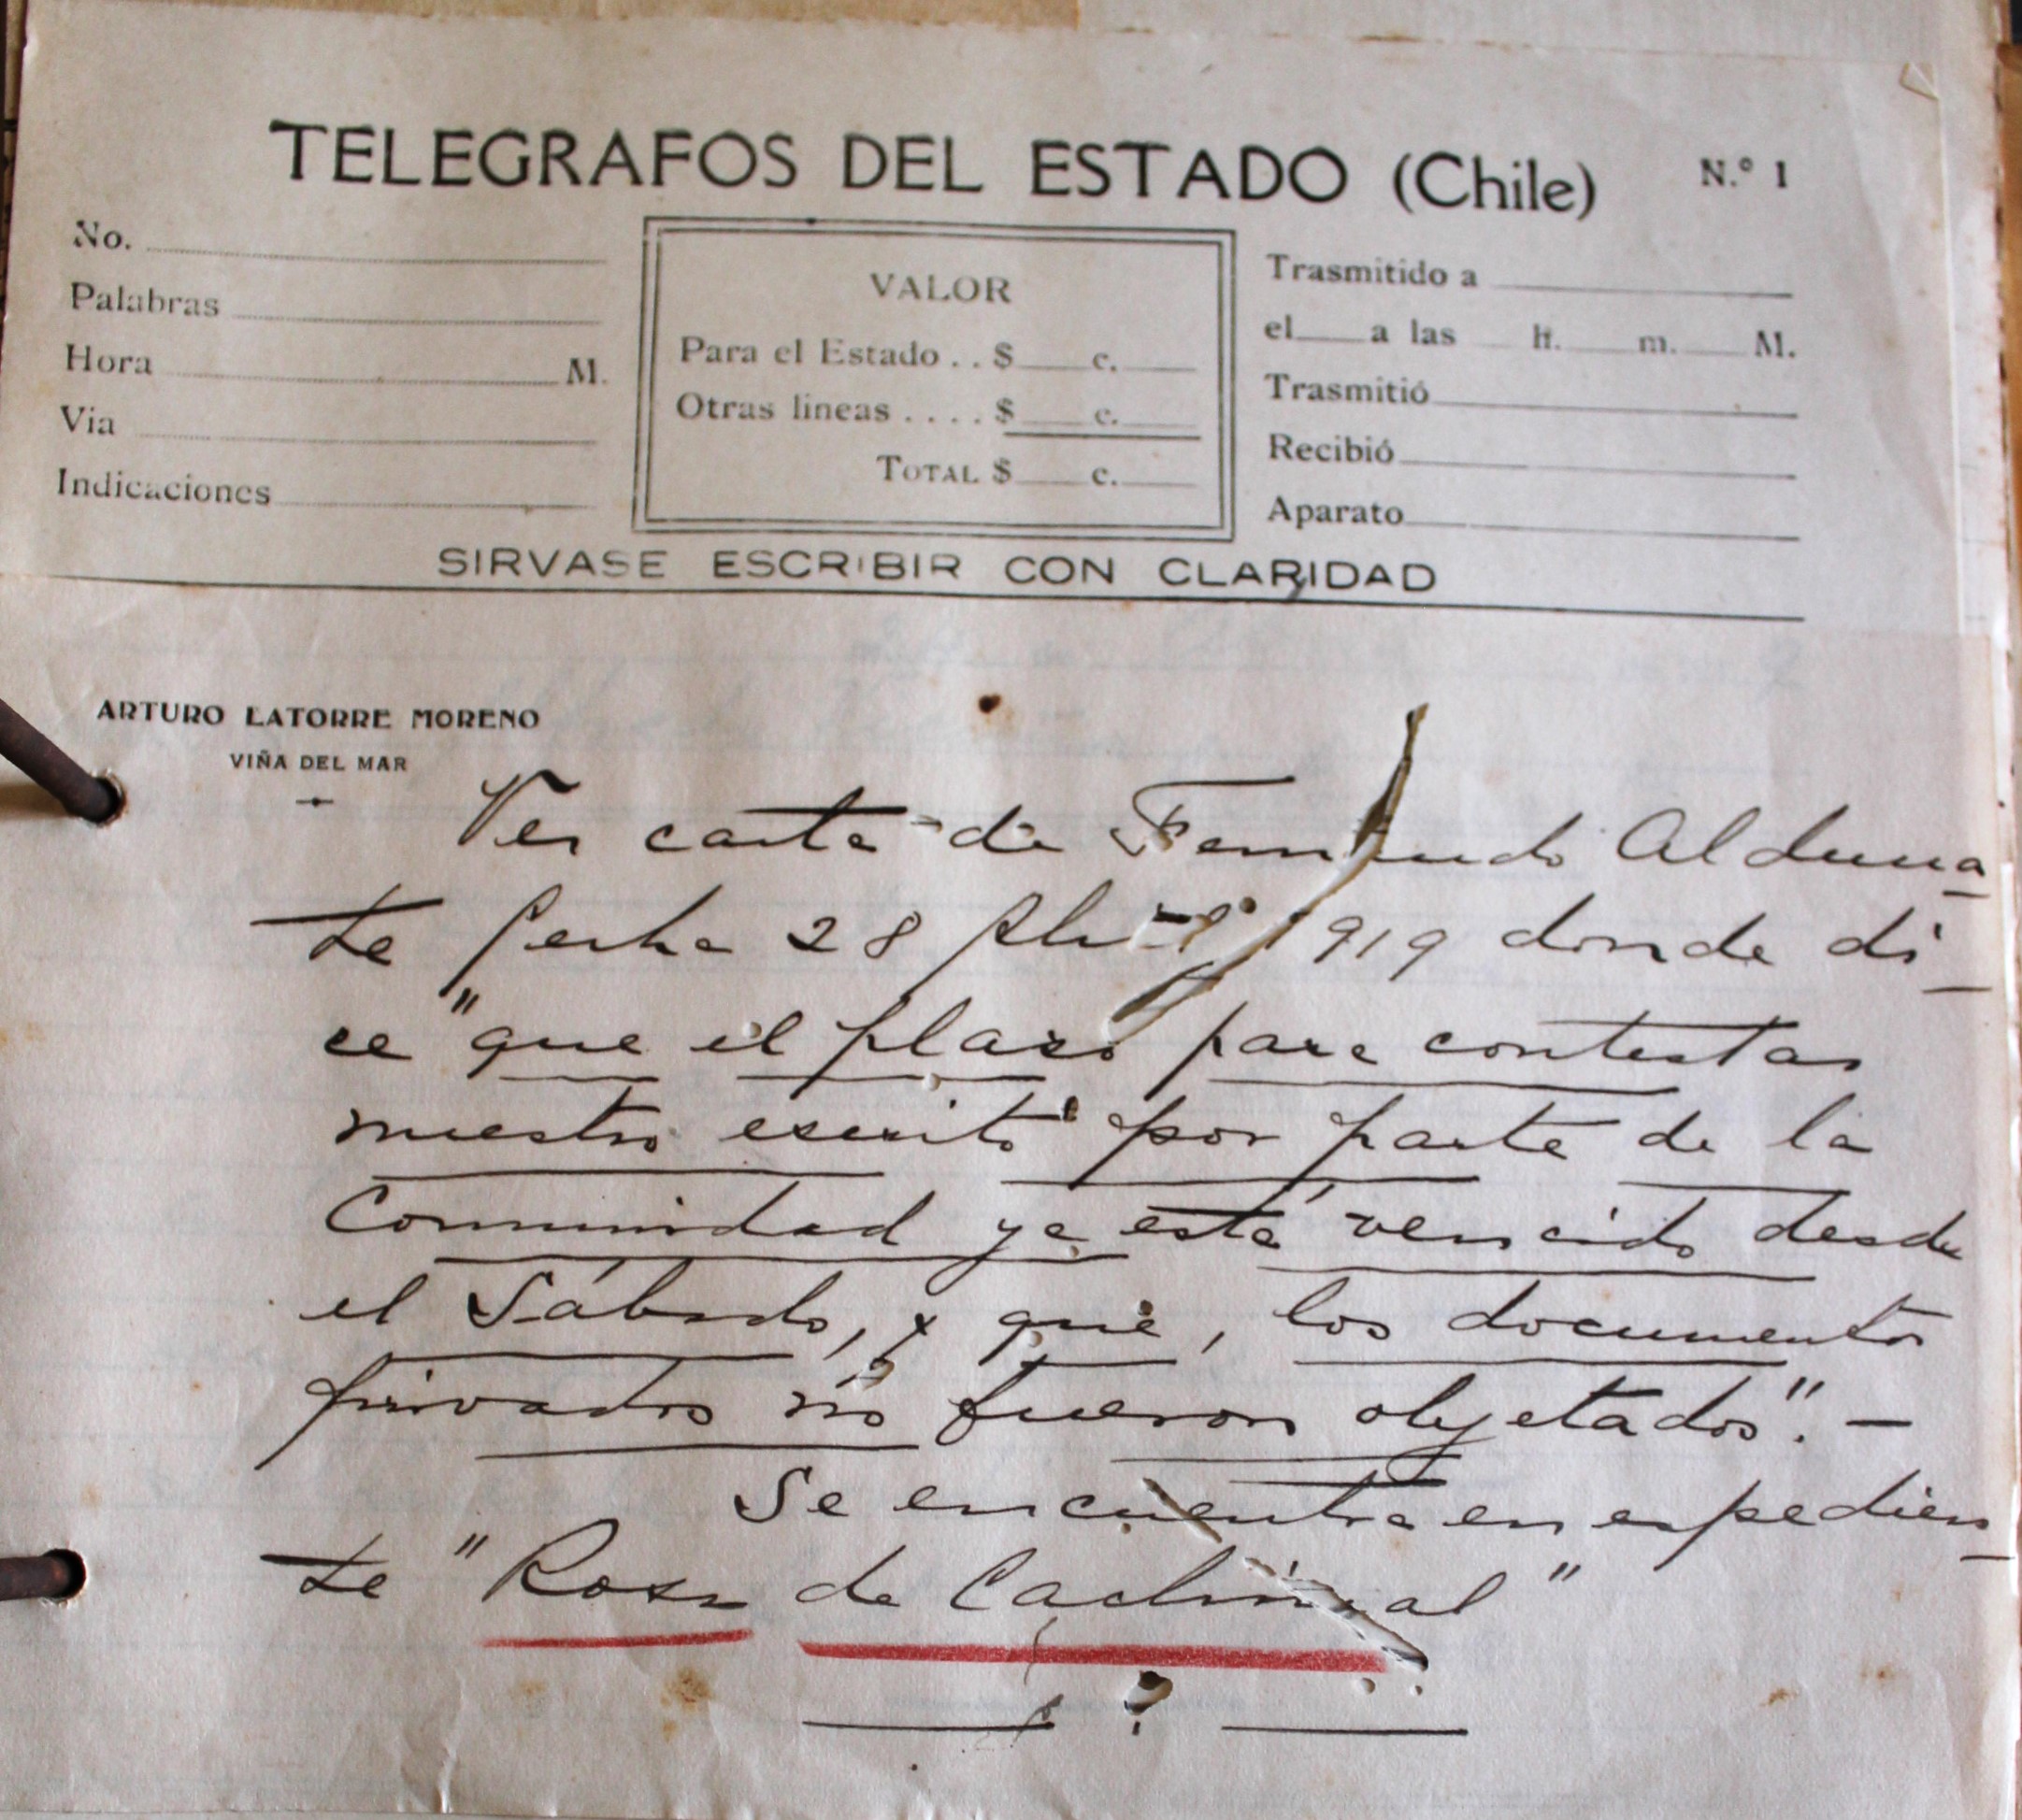 TELEGRAFOS DEL ESTADO (Chile) N.º 1
No.
Palabras
Hora M.
Via
Indicaciones
VALOR
Para el Estado . . $ c.
Otras lineas . . . . $ c.
TOTAL $ c.
Trasmitido a
el a las h. m. M.
Trasmitió
Recibió
Aparato
SIRVASE ESCRIBIR CON CLARIDAD
ARTURO LATORRE MORENO
VIÑA DEL MAR
Ver carta de Fernando Alduna
te fecha 28 Abril 1919 donde di
ce "que el plazo para contestar
nuestro escrito por parte de la
Comunidad ya está vencido desde
el Sábado, y que, los documentos
privados no fueron objetados". —
Se encuentra en expedien
te "Rosa de Cachinal"